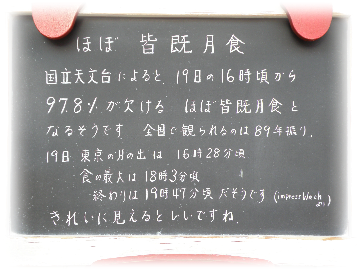 ほぼ 皆既月食
国立天文台によると、19日の16時頃から
97.8%が欠ける ほぼ皆既月食と
なるそうです 全国で観られるのは89年振り。
19日 東京の月の出は 16時28分頃
食の最大は 18時3分頃
終わりは 19時47分頃 だそうです (impress Watch
より)
きれいに見えるといいですね。